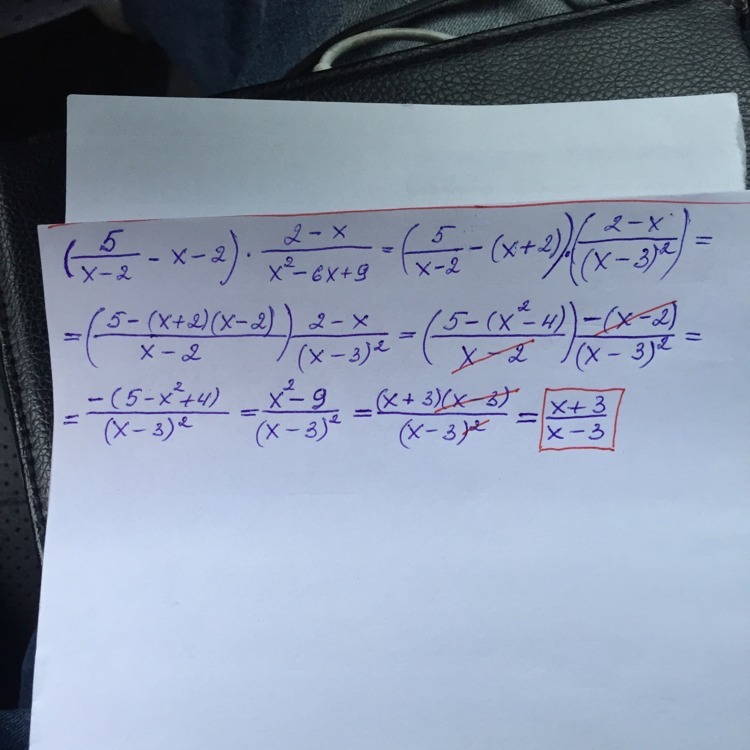 (5/(x-2) - x - 2) · (2-x)/(x²-6x+9) = (5/(x-2) - (x+2)) · ((2-x)/(x-3)²) =
= ((5-(x+2)(x-2))/(x-2)) · (2-x)/(x-3)² = ((5-(x²-4))/(x-2)) · (-(x-2))/(x-3)² =
= (-(5-x²+4))/(x-3)² = (x²-9)/(x-3)² = ((x+3)(x-3))/(x-3)² = (x+3)/(x-3)